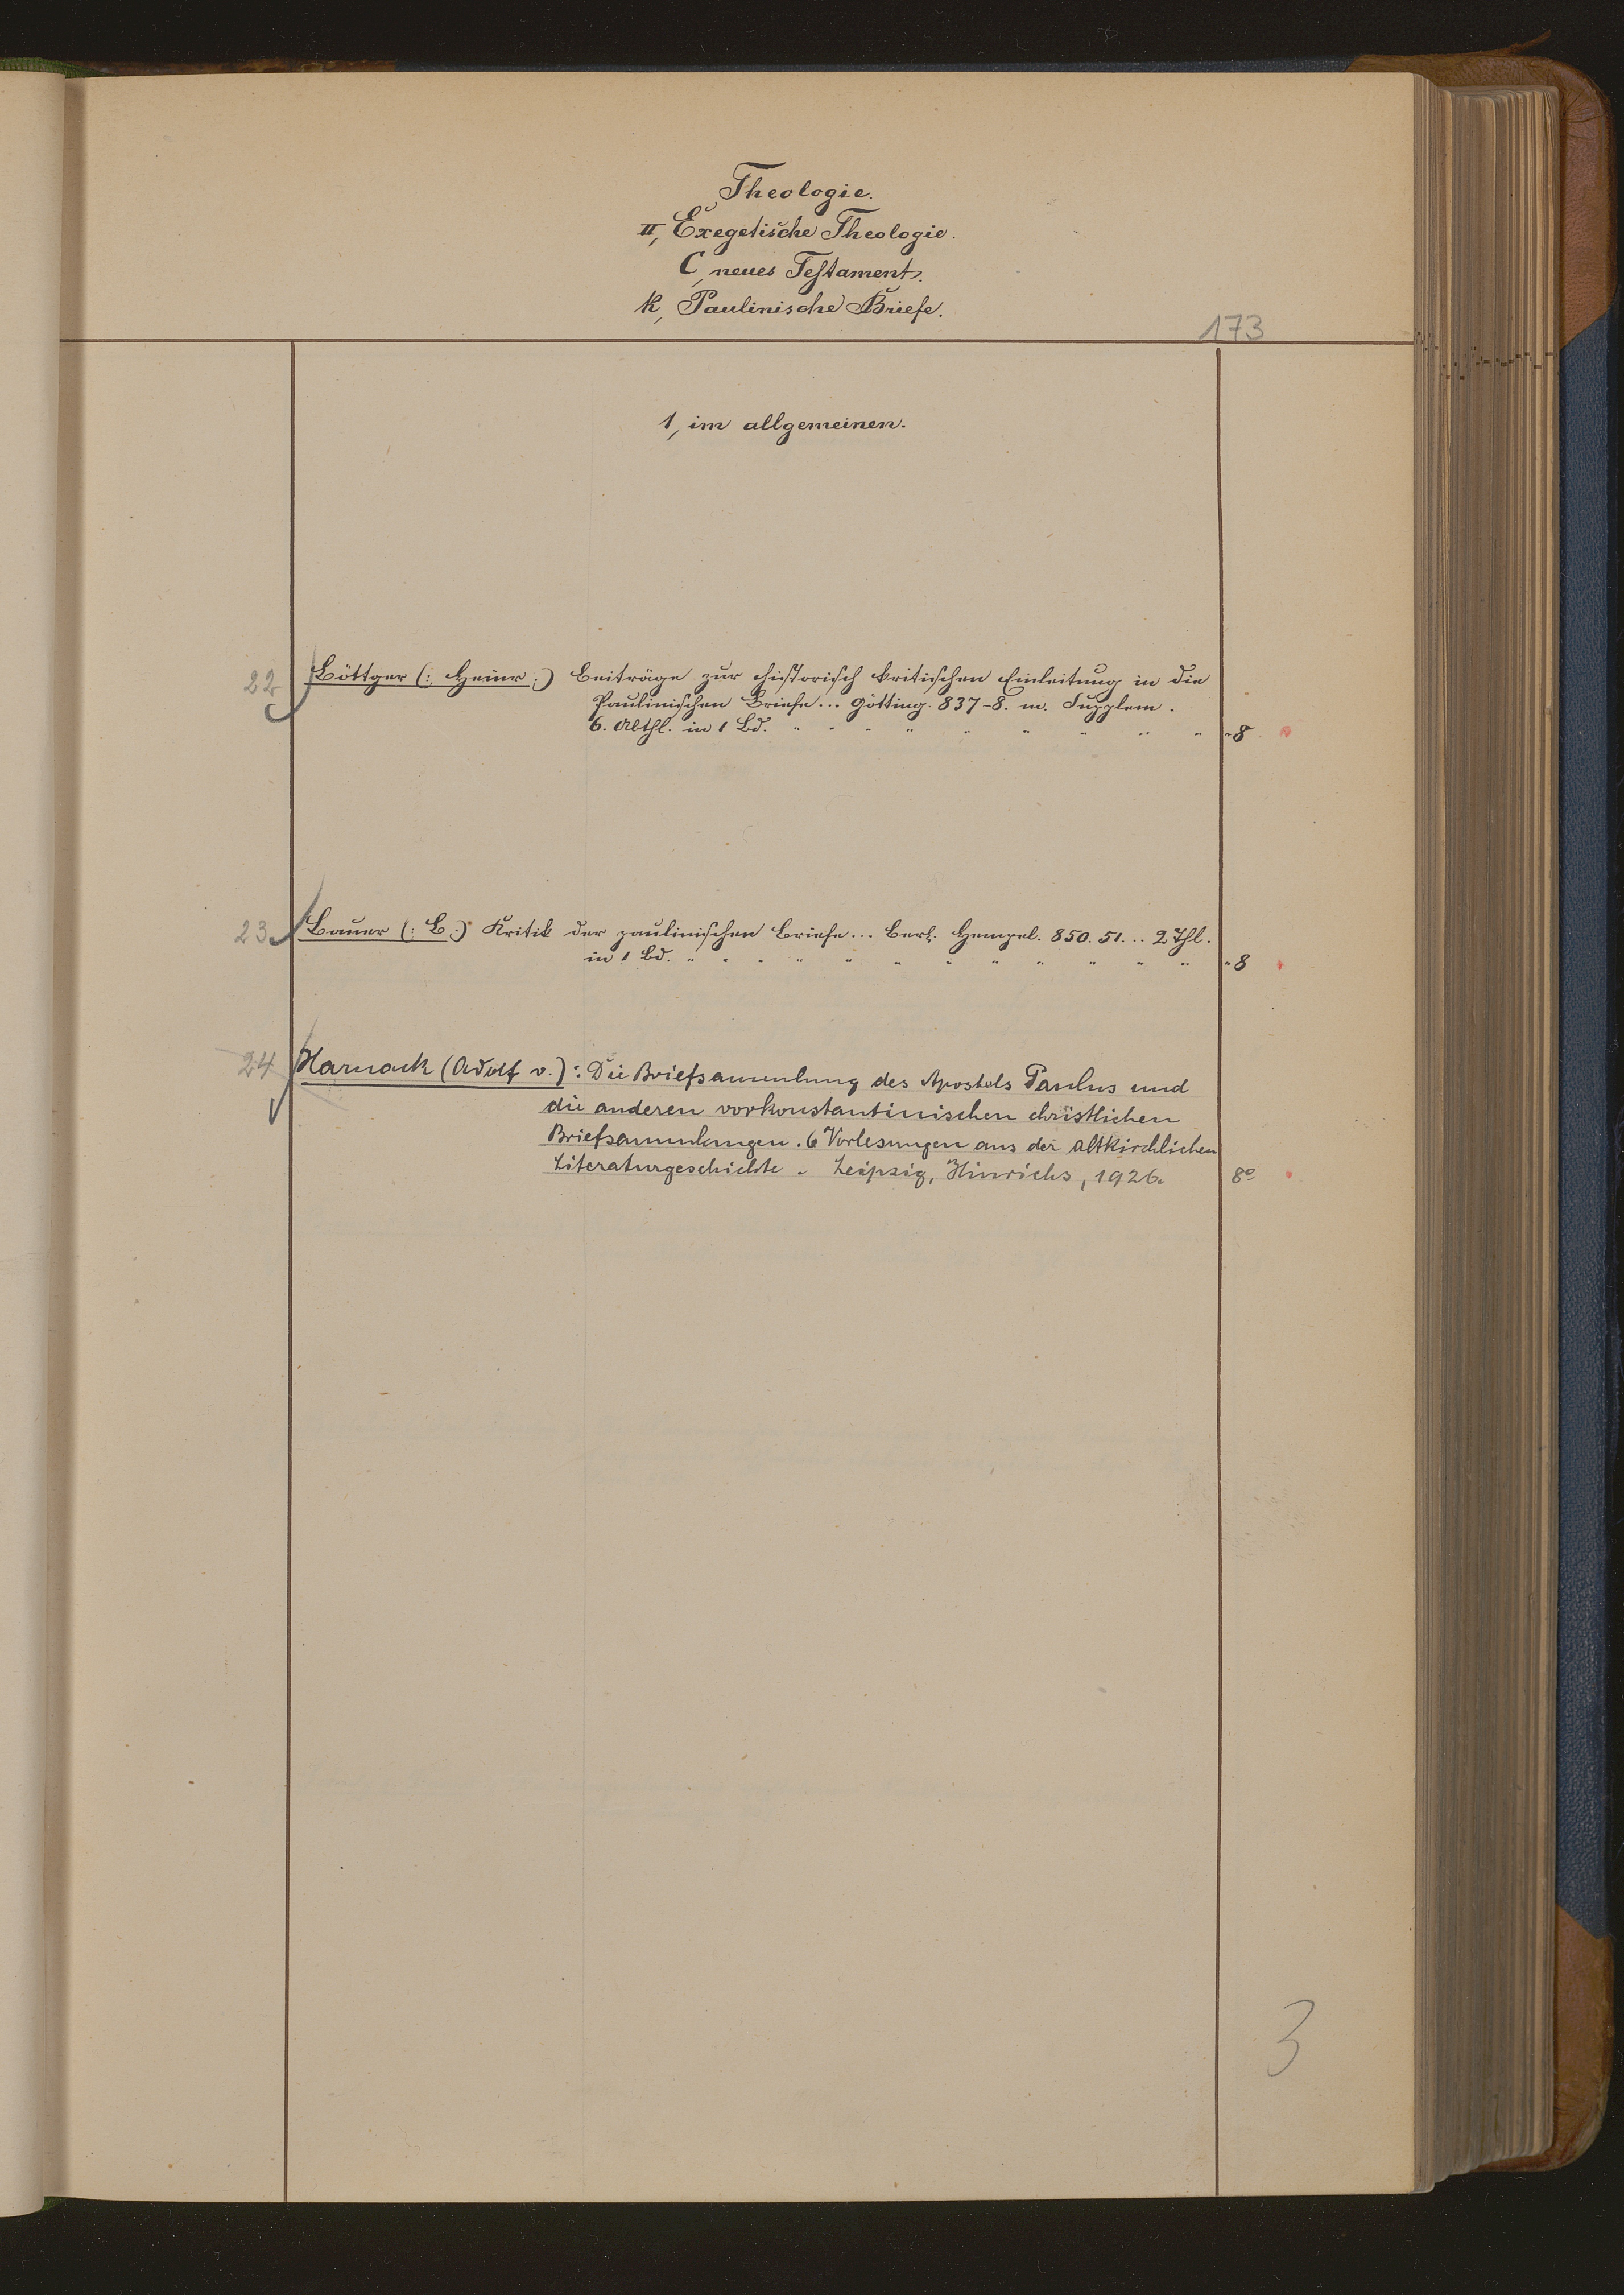 Theologie.
II, Exegetische Theologie.
C, neues Testament.
k, Paulinische Briefe.
173
1, im allgemeinen.
22 Böttger (: Heinr :) Beiträge zur historisch kritischen Einleitung in die
Paulinischen Briefe... Götting. 837-8. m. Supplem.
6. Abthl. in 1 Bd. " " " " " " " " " " 8
23 Bauer (: B :) Kritik der paulinischen Briefe... Berl: Hempel. 850. 51... 2 Thl.
in 1 Bd. " " " " " " " " " " " " " 8
24 Harnack (Adolf v.): Die Briefsammlung des Apostels Paulus und
die anderen vorkonstantinischen christlichen
Briefsammlungen. 6 Vorlesungen aus der altkirchlichen
Literaturgeschichte - Leipzig, Hinrichs, 1926. 8°
3